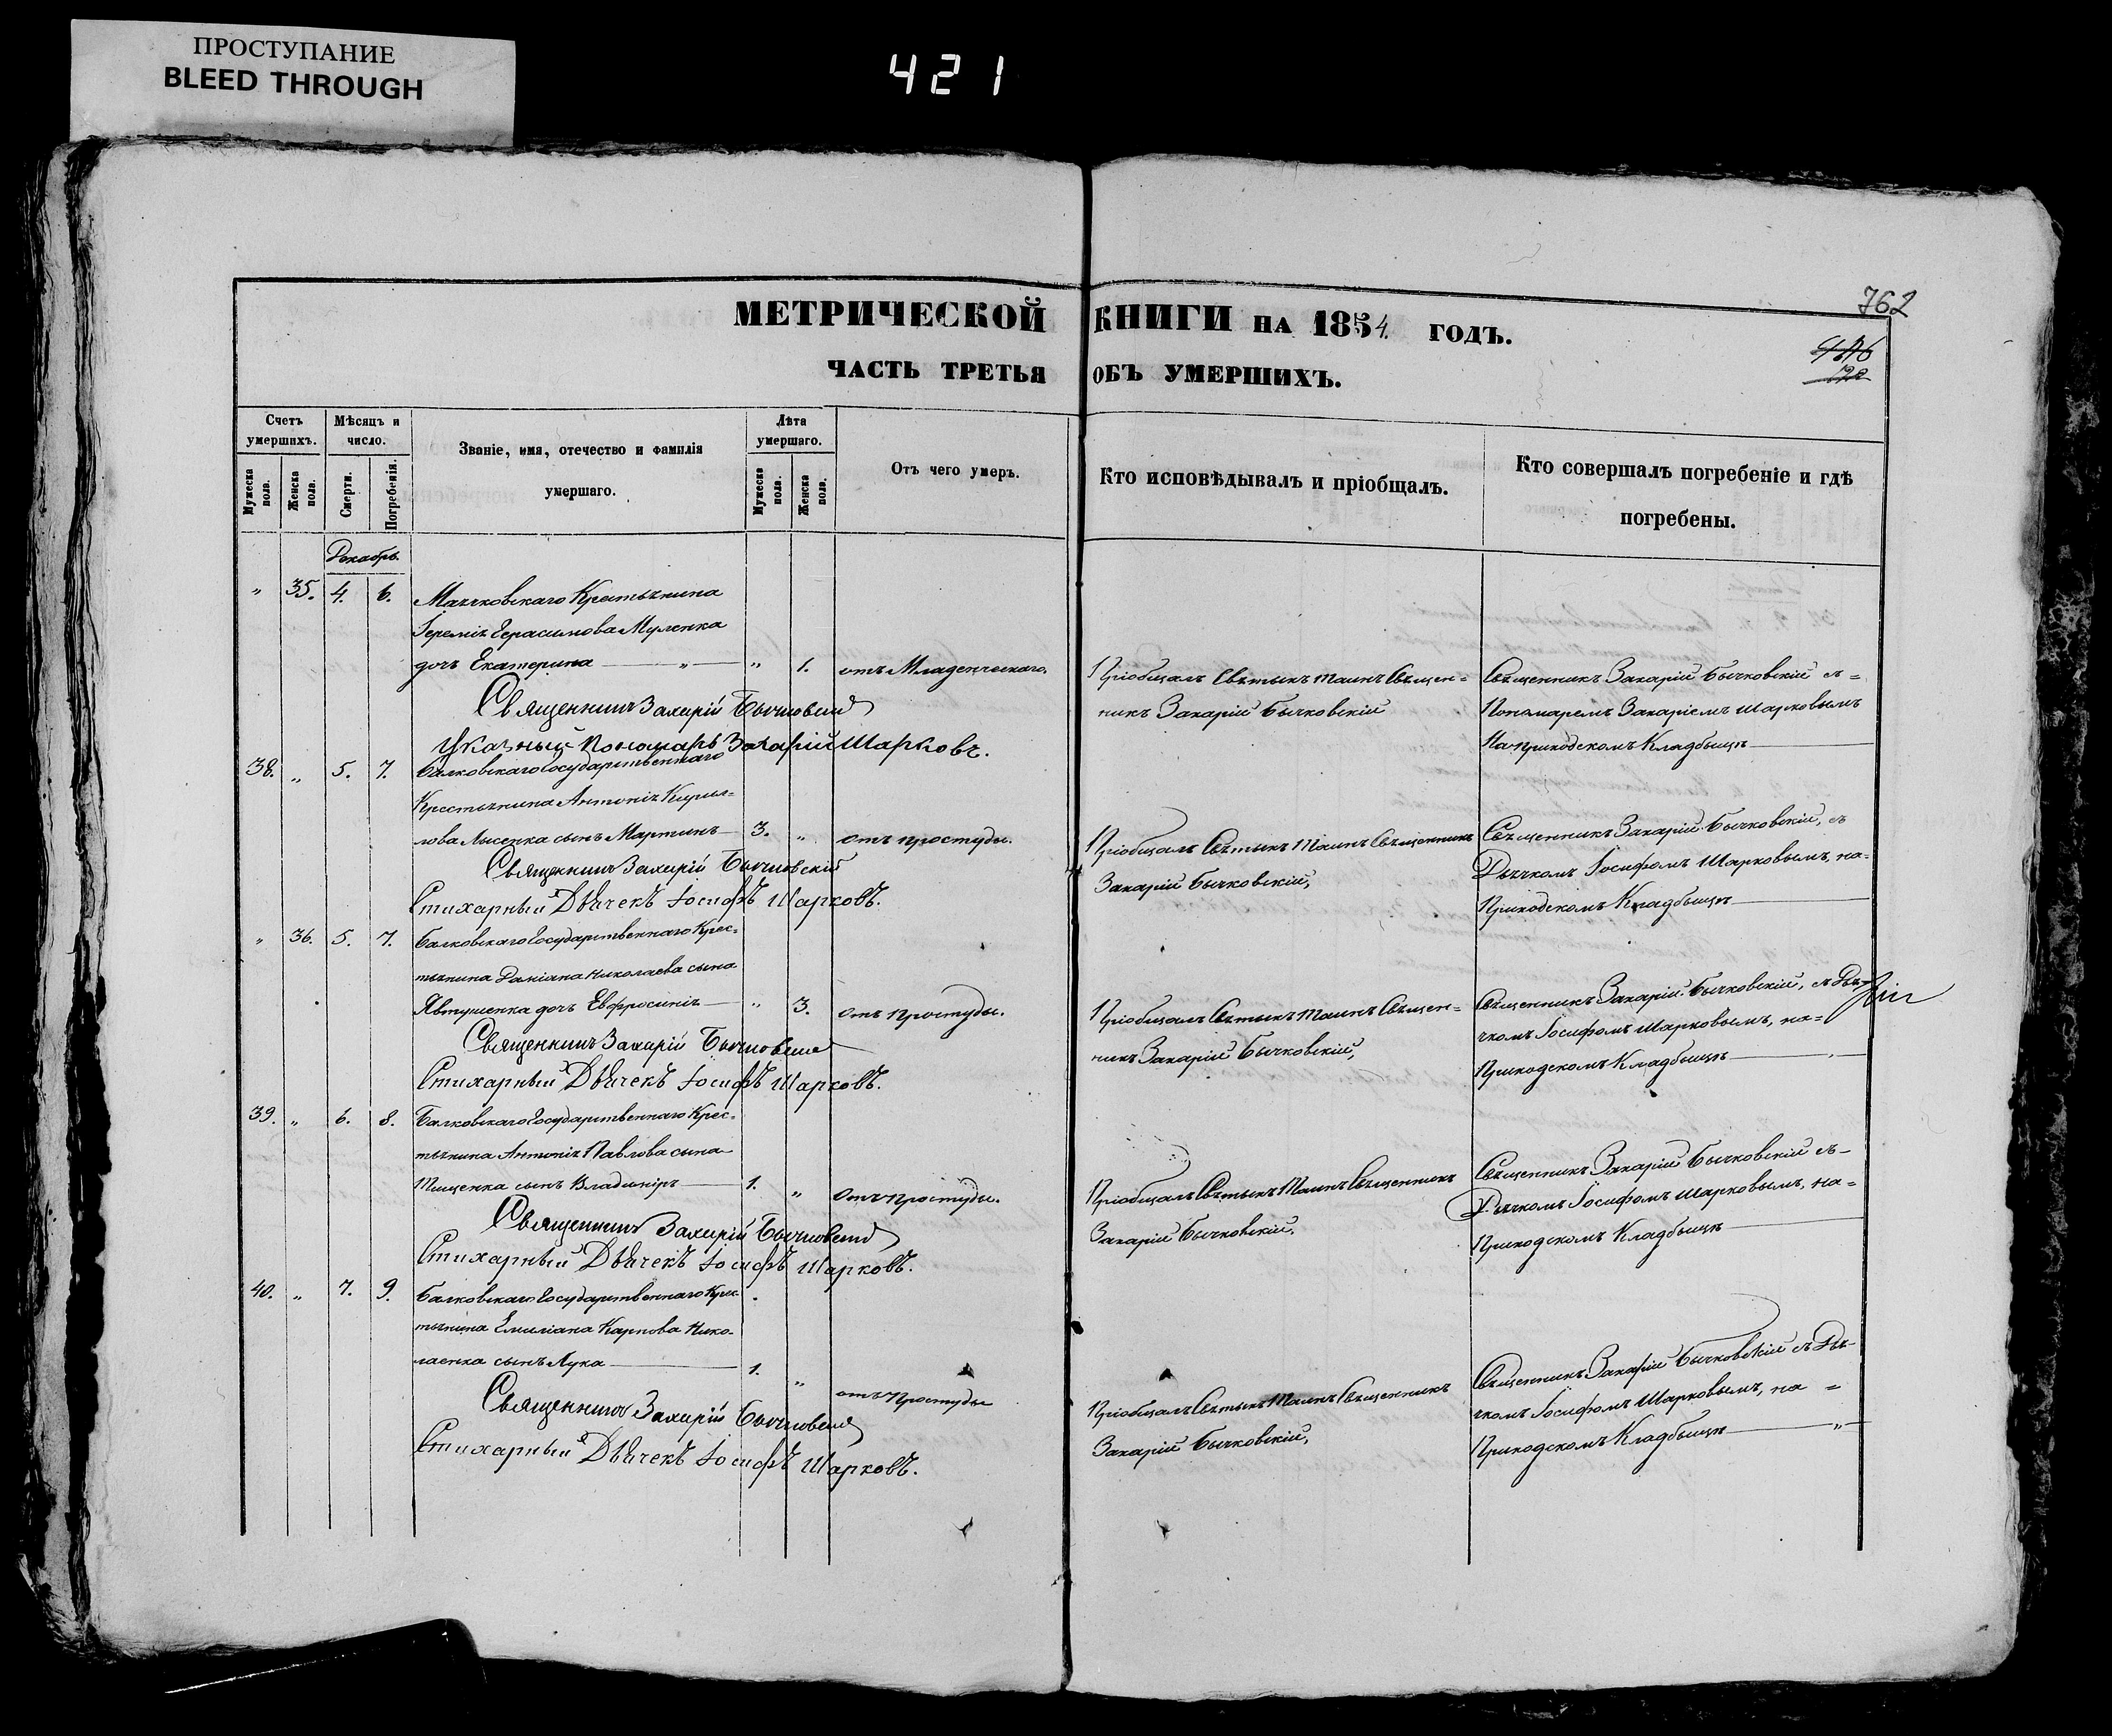 ПРОСТУПАНИЕ
BLEED THROUGH
421
762
МЕТРИЧЕСКОЙ КНИГИ НА 1854. ГОДЪ.
ЧАСТЬ ТРЕТЬЯ ОБЪ УМЕРШИХЪ.
Счетъ умершихъ.
Мужеска пола.
Женска пола.
Мѣсяцъ и число.
Смерти.
Погребенія.
Званіе, имя, отечество и фамилія умершаго.
Лѣта умершаго.
Мужеска пола.
Женска пола.
Отъ чего умеръ.
Кто исповѣдывалъ и пріобщалъ.
Кто совершалъ погребеніе и гдѣ погребены.
Декабрь.
" 35. 4. 6. Маячковскаго Крестьянина
Іереміи Герасимова Муленка
дочь Екатерина " " 1. отъ Младенческаго.
Пріобщалъ Святыхъ таинъ Священ=
никъ Захарій Бычковскій
Священникъ Захарій Бычковскій съ=
Пономаремъ Захаріемъ Шарковымъ
На приходскомъ Кладбищѣ
Священникъ Захарій Бычковскій
Указный Пономарь Захарій Шарковъ.
38. " 5. 7. Балковскаго Государственнаго
Крестьянина Антонія Кирил=
лова Лысенка сынъ Мартинъ 3. " отъ простуды.
Пріобщалъ Святыхъ Таинъ Священникъ
Захарій Бычковскій,
Священникъ Захарій Бычковскій, съ
Дьячкомъ Іосифомъ Шарковымъ, на=
Приходскомъ Кладбищѣ
Священникъ Захарій Бычковскій
Стихарный Дьячекъ Іосифъ Шарковъ.
" 36. 5. 7. Балковскаго Государственнаго Крес=
тьянина Даміана Николаева сына
Явтушенка дочь Евфросинія " 3. отъ простуды.
Пріобщалъ Святыхъ таинъ Священ=
никъ Захарій Бычковскій,
Священникъ Захарій Бычковскій, съ Дья=
чкомъ Іосифомъ Шарковымъ, на=
Приходскомъ Кладбищѣ
Священникъ Захарій Бычковскій
Стихарный Дьячекъ Іосифъ Шарковъ.
39. " 6. 8. Балковскаго Государственнаго Крес=
тьянина Антонія Павлова сына
Тищенка сынъ Владиміръ 1. " Отъ простуды.
Пріобщалъ Святыхъ Таинъ Священникъ
Захарій Бычковскій.
Священникъ Захарій Бычковскій съ
Дьячкомъ Іосифомъ Шарковымъ, на=
Приходскомъ Кладбищѣ
Священникъ Захарій Бычковскій
Стихарный Дьячекъ Іосифъ Шарковъ.
40. " 7. 9. Балковскаго Государственнаго Крес
тьянина Емиліана Карпова Нико-
лаенка сынъ Лука 1. " отъ Простуды
Пріобщалъ Святыхъ Таинъ Священникъ
Захарій Бычковскій,
Священникъ Захарій Бычковскій съ Дья-
чкомъ Іосифомъ Шарковымъ, на =
Приходскомъ Кладбищѣ "
Священникъ Захарій Бычковскій
Стихарный Дьячекъ Іосифъ Шарковъ.